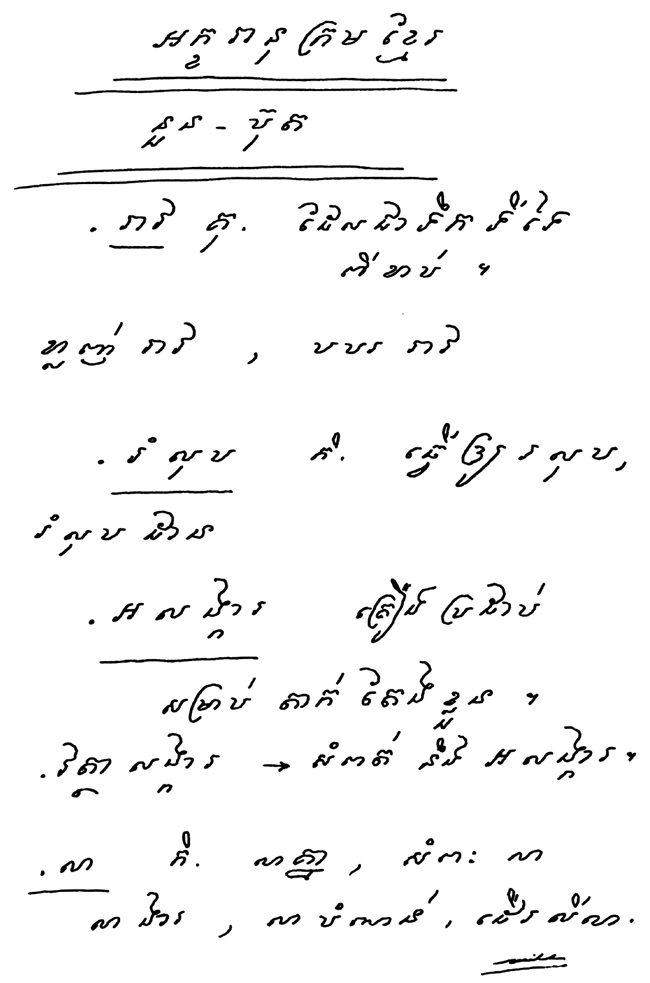 អក្ខរានុក្រមខ្មែរ
នួន - ប៊ុត
. រាវ គុ. ដែលជាទឹក ទន់ទៃ
ពីខាប់ ។
ខ្លាញ់ រាវ , បបរ រាវ
. រំលុប កិ. ធ្វើឲ្យ រលុប,
រំលុប ជាន
. អលង្ការ គ្រឿងប្រដាប់
សម្រាប់ តាក់តែងខ្លួន ។
. វត្ថាលង្ការ → សំពត់ នឹង អលង្ការ។
. លា កិ. លាគ្នា , សំពះ លា
លាងារ , លាបំណន់ , ដើរលីលា.